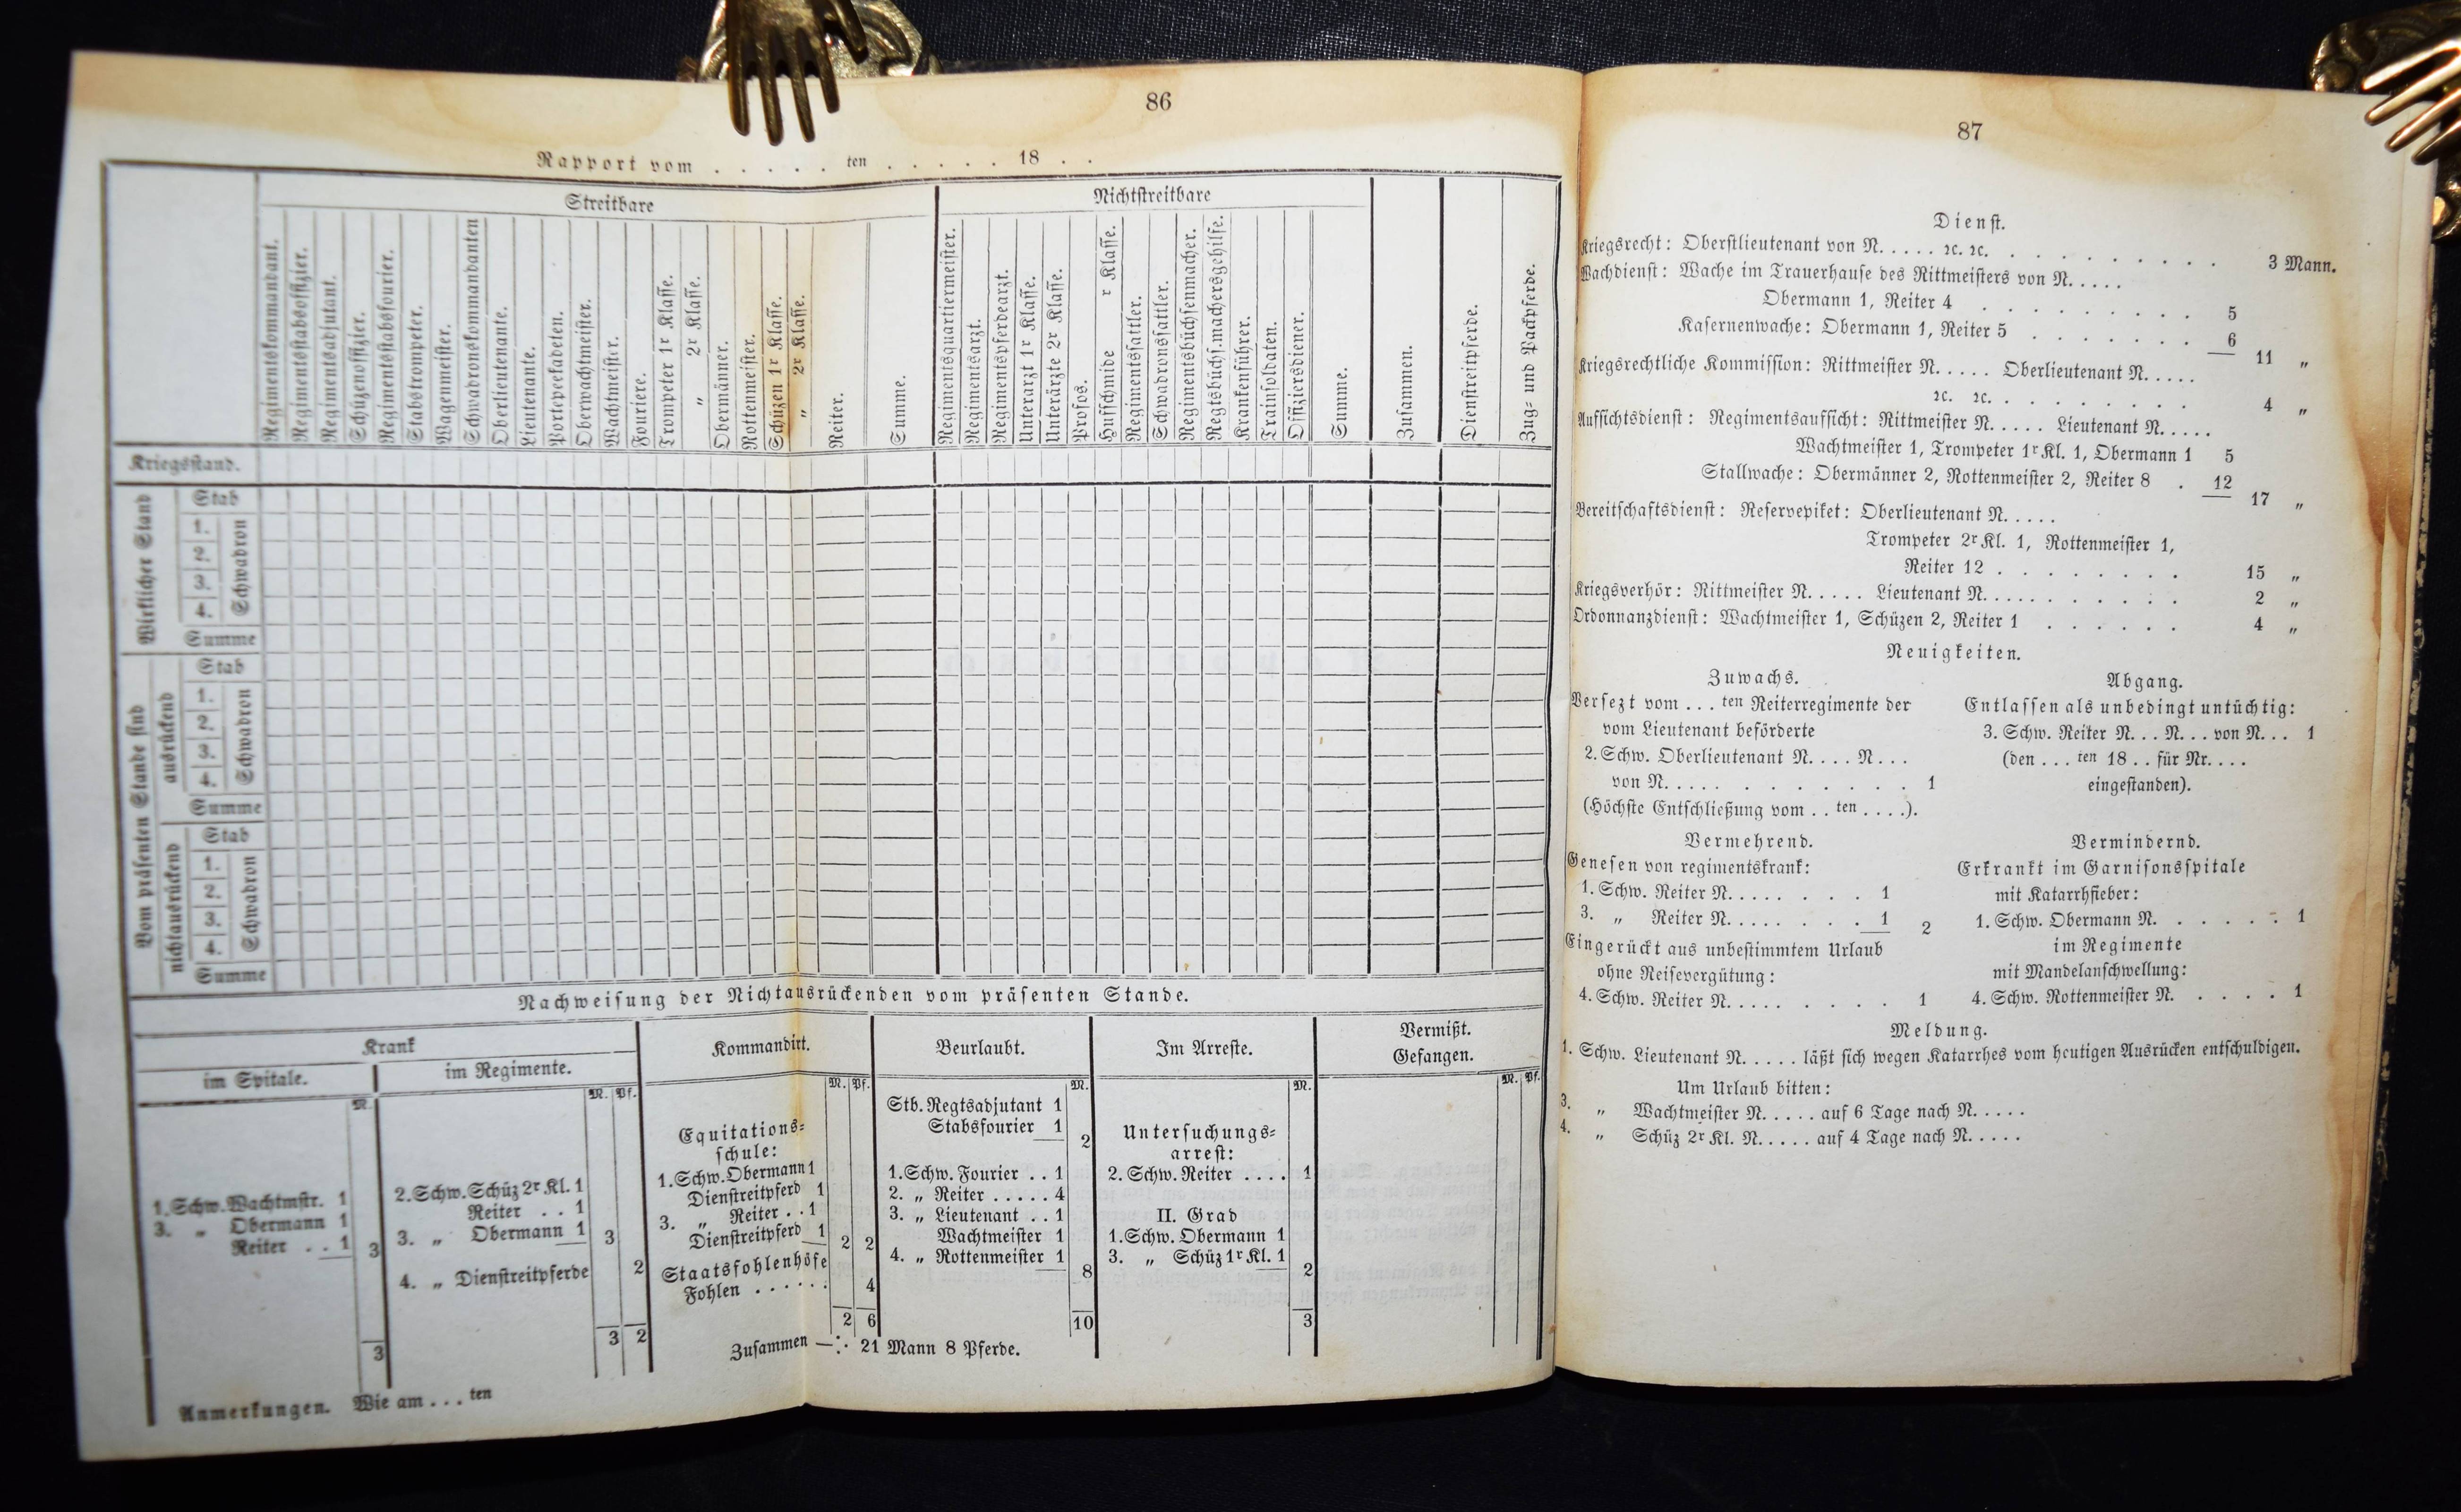 86
Rapport vom . . . . . ten . . . . . 18 . .
Streitbare
Nichtstreitbare
Regimentskommandant.
Regimentsstabsoffizier.
Regimentsadjutant.
Schüzenoffizier.
Regimentsstabsfourier.
Stabstrompeter.
Wagenmeister.
Schwadronskommandanten
Oberlieutenante.
Lieutenante.
Portepeekadeten.
Oberwachtmeister.
Wachtmeister.
Fouriere.
Trompeter 1r Klasse.
„ 2r Klasse.
Obermänner.
Rottenmeister.
Schüzen 1r Klasse.
„ 2r Klasse.
Reiter.
Summe.
Regimentsquartiermeister.
Regimentsarzt.
Regimentspferdearzt.
Unterarzt 1r Klasse.
Unterärzte 2r Klasse.
Profos.
Hufschmide r Klasse.
Regimentssattler.
Schwadronssattler.
Regimentsbüchsenmacher.
Regtsbüchs.machersgehilfe.
Krankenführer.
Trainsoldaten.
Offiziersdiener.
Summe.
Zusammen.
Dienstreitpferde.
Zug- und Packpferde.
Kriegsstand.
Wirklicher Stand
Stab
1.
2.
3.
4.
Schwadron
Summe
Vom präsenten Stande sind
ausrückend
Stab
1.
2.
3.
4.
Schwadron
Summe
nichtausrückend
Stab
1.
2.
3.
4.
Schwadron
Summe
Nachweisung der Nichtausrückenden vom präsenten Stande.
Krank
im Spitale.
M.
1. Schw. Wachtmstr. 1
3. „ Obermann 1
Reiter . . 1 3
3
im Regimente.
M. Pf.
2. Schw. Schüz 2r Kl. 1
Reiter . . 1
3. „ Obermann 1 3
4. „ Dienstreitpferde 2
3 2
Kommandirt.
M. Pf.
Equitations-
schule:
1. Schw. Obermann 1
Dienstreitpferd 1
3. „ Reiter . . 1
Dienstreitpferd 1 2 2
Staatsfohlenhöfe
Fohlen . . . . . . 4
2 6
Beurlaubt.
M.
Stb. Regtsadjutant 1
Stabsfourier 1 2
1. Schw. Fourier . . 1
2. „ Reiter . . . . . 4
3. „ Lieutenant . . 1
Wachtmeister 1
4. „ Rottenmeister 1 8
10
Im Arreste.
M.
Untersuchungs-
arrest:
2. Schw. Reiter . . . . 1
II. Grad
1. Schw. Obermann 1
3. „ Schüz 1r Kl. 1 2
3
Vermißt.
Gefangen.
M. Pf.
Zusammen —:· 21 Mann 8 Pferde.
Anmerkungen. Wie am . . . ten
87
Dienst.
Kriegsrecht: Oberstlieutenant von N. . . . . ꝛc. ꝛc. . . . . . . . . . 3 Mann.
Wachdienst: Wache im Trauerhause des Rittmeisters von N. . . . .
Obermann 1, Reiter 4 . . . . . . . . . 5
Kasernenwache: Obermann 1, Reiter 5 . . . . . . . 6
11 „
Kriegsrechtliche Kommission: Rittmeister N. . . . . Oberlieutenant N. . . . .
ꝛc. ꝛc. . . . . . . . . 4 „
Aufsichtsdienst: Regimentsaufsicht: Rittmeister N. . . . . Lieutenant N. . . . .
Wachtmeister 1, Trompeter 1r Kl. 1, Obermann 1 5
Stallwache: Obermänner 2, Rottenmeister 2, Reiter 8 . 12
17 „
Bereitschaftsdienst: Reservepiket: Oberlieutenant N. . . . .
Trompeter 2r Kl. 1, Rottenmeister 1,
Reiter 12 . . . . . . . . 15 „
Kriegsverhör: Rittmeister N. . . . . Lieutenant N. . . . . . . . . . . 2 „
Ordonnanzdienst: Wachtmeister 1, Schüzen 2, Reiter 1 . . . . . . 4 „
Neuigkeiten.
Zuwachs.
Versezt vom . . . ten Reiterregimente der
vom Lieutenant beförderte
2. Schw. Oberlieutenant N. . . . N. . .
von N. . . . . . . . . . . 1
(Höchste Entschließung vom . . ten . . . .).
Abgang.
Entlassen als unbedingt untüchtig:
3. Schw. Reiter N. . . N. . . von N. . . 1
(den . . . ten 18 . . für Nr. . . .
eingestanden).
Vermehrend.
Genesen von regimentskrank:
1. Schw. Reiter N. . . . . . . . 1
3. „ Reiter N. . . . . . . . 1 2
Eingerückt aus unbestimmtem Urlaub
ohne Reisevergütung:
4. Schw. Reiter N. . . . . . . . . 1
Vermindernd.
Erkrankt im Garnisonsspitale
mit Katarrhfieber:
1. Schw. Obermann N. . . . . . 1
im Regimente
mit Mandelanschwellung:
4. Schw. Rottenmeister N. . . . . 1
Meldung.
1. Schw. Lieutenant N. . . . . läßt sich wegen Katarrhes vom heutigen Ausrücken entschuldigen.
Um Urlaub bitten:
3. „ Wachtmeister N. . . . . auf 6 Tage nach N. . . . .
4. „ Schüz 2r Kl. N. . . . . auf 4 Tage nach N. . . . .